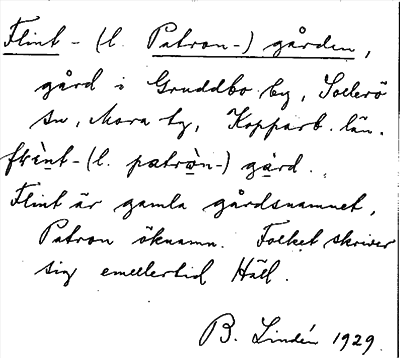 Flint- (l. Patron-) gården,
gård i Gruddbo by, Sollerö
sn, Mora tg, Kopparb. län.
flìnt- (l. patròn-) gård.
Flint är gamla gårdsnamnet,
Patron öknamn. Folket skriver
sig emellertid Häll.
B. Lindén 1929.